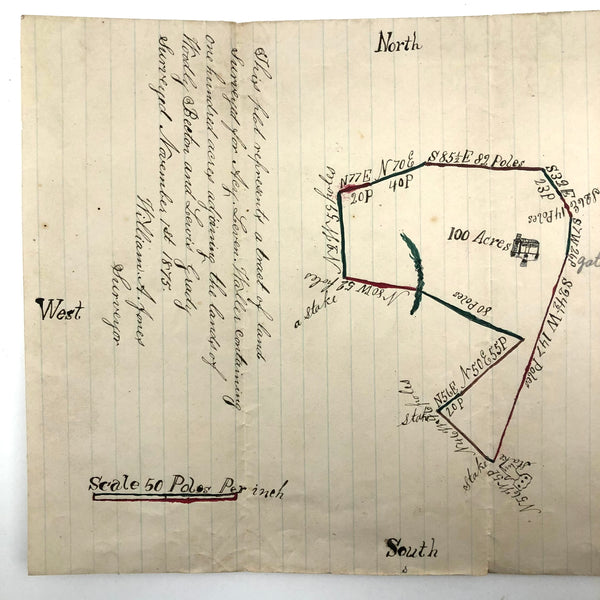 North
This plat represents a tract of land
Surveyed for Acy Leven Waller containing
one hundred acres adjoining the lands of
Beeton and Lewis Grady
Surveyed November 1st 1875.
William A. Jones
Surveyor
West
N 77 E
20 P
N 70 E
40 P
S 85½ E 82 Poles
S 39 E
23 P
14 Poles
S 7 W 26 P
100 Acres
W 147 Poles
N 80 W 52 Poles
a stake
80 Poles
N 50 E 55 P
N 56 E
20 P
stake
stake
Scale 50 Poles Per inch
South